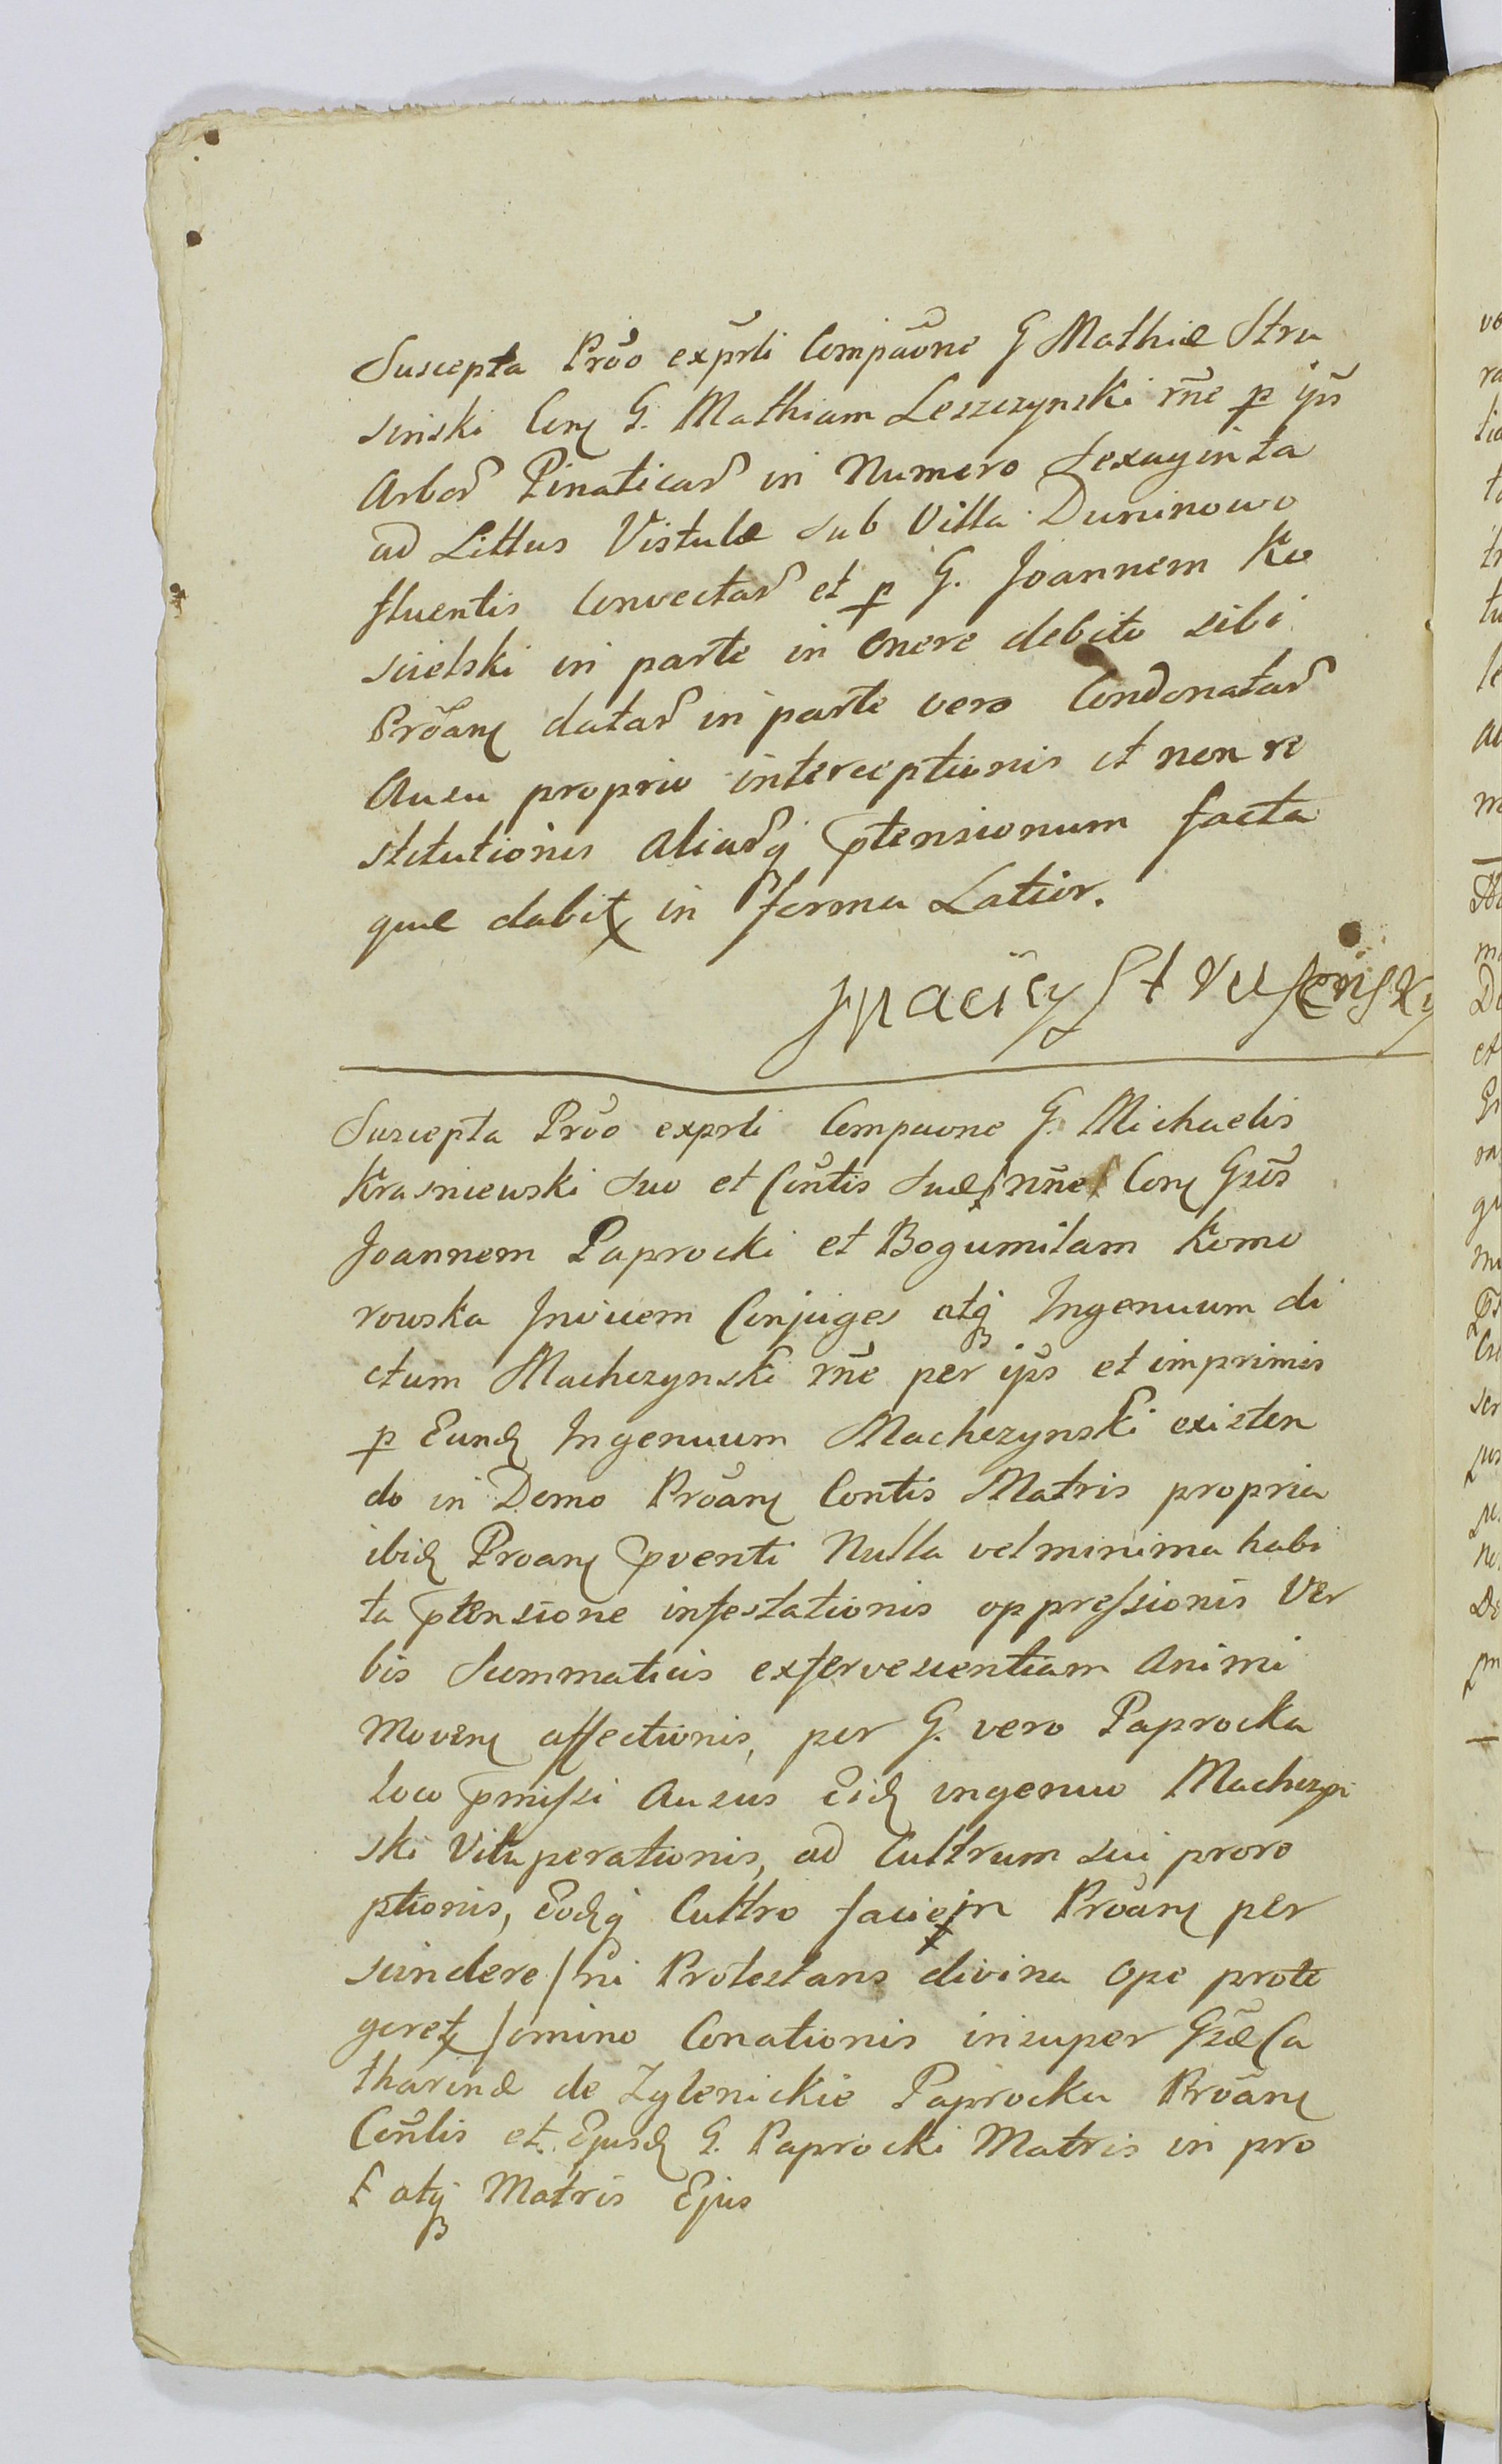 Suscepta Prõo exprti Compaõne G Mathiæ Stru
sinski Cory G. Mathiam Leszczynski rñe p ips
Arbor Pinaticar in Numero Sexaginta
ad Littus Vistulæ sub Villa Duninowo
fluentis Convectar et p G. Joannem Ko
scielski in parte in Onere debito sibi
Prõany datar in parte vero Condonatar
Ausu proprio interceptionis et non re
stitutionis aliarq ptensionum facta
quæ dabit in forma Latior.
Jgnacÿ Strusensky
Suscepta Prõo exprti Compaone G. Michaelis
Krasniewski suo et Conĩtis suæ nñe Cory Gsõs
Joannem Paprocki et Bogumilam Komo
rowska Invicem Conjuges atq Ingenuum di
ctum Machczynski rñe per ips et imprimis
p Eund Ingenuum Machczynski existen
do in Domo Prõany Contis Matris propria
ibid Proany pventi Nulla vel minima habi
ta ptensione infestationis oppressionis Ver
bis Summaticis exfervescentiam Animi
Moveny affectionis, per G. vero Paprocka
loco pmissi Ausus Eid ingenuo Machczyn
ski Vituperationis, ad Cultrum sui proro
ptionis, Eodq Cultro faciem Prõany per
scindere / ni Protestans divina Ope prote
geret / omino Conationis insuper Gsæ Ca
tharinæ de Zglenickie Paprocka Prõany
Conĩtis et Ejusd G. Paprocki Matris in pro
F atq Matris Ejus